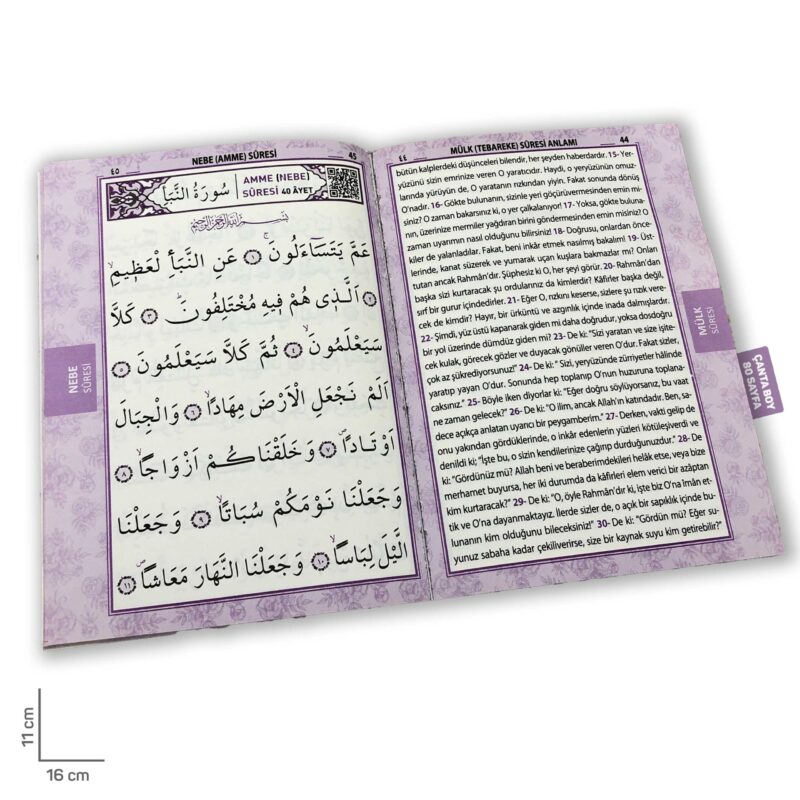 ٤٤ MÜLK (TEBAREKE) SÛRESİ ANLAMI 44
bütün kalplerdeki düşünceleri bilendir, her şeyden haberdardır. 15- Yer-
yüzünü sizin emrinize veren O yaratıcıdır. Haydi, o yeryüzünün omuz-
larında yürüyün de, O yaratanın rızkından yiyin. Fakat sonunda dönüş
O'nadır. 16- Gökte bulunanın, sizinle yeri göçürüvermesinden emin mi-
siniz? O zaman bakarsınız ki, o yer çalkalanıyor! 17- Yoksa, gökte buluna-
nın, üzerinize mermiler yağdıran birini göndermesinden emin misiniz? O
zaman uyarımın nasıl olduğunu bilirsiniz! 18- Doğrusu, onlardan önce-
kiler de yalanladılar. Fakat, beni inkâr etmek nasılmış bakalım! 19- Üst-
lerinde, kanat süzerek ve yumarak uçan kuşlara bakmazlar mı? Onları
tutan ancak Rahmân'dır. Şüphesiz ki O, her şeyi görür. 20- Rahmân'dan
başka sizi kurtaracak şu ordularınız da kimlerdir? Kâfirler başka değil,
sırf bir gurur içindedirler. 21- Eğer O, rızkını keserse, sizlere şu rızık vere-
cek de kimdir? Hayır, bir ürküntü ve azgınlık içinde inada dalmışlardır.
22- Şimdi, yüz üstü kapanarak giden mi daha doğrudur, yoksa dosdoğru
bir yol üzerinde dümdüz giden mi? 23- De ki: "Sizi yaratan ve size işite-
cek kulak, görecek gözler ve duyacak gönüller veren O'dur. Fakat sizler,
çok az şükrediyorsunuz!" 24- De ki: " Sizi, yeryüzünde zürriyetler hâlinde
yaratıp yayan O'dur. Sonunda hep toplanıp O'nun huzuruna toplana-
caksınız." 25- Böyle iken diyorlar ki: "Eğer doğru söylüyorsanız, bu vaat
ne zaman gelecek?" 26- De ki: "O ilim, ancak Allah'ın katındadır. Ben, sa-
dece açıkça anlatan uyarıcı bir peygamberim." 27- Derken, vakti gelip de
onu yakından gördüklerinde, o inkâr edenlerin yüzleri kötüleşiverdi ve
denildi ki; "İşte bu, o sizin kendilerinize çağırıp durduğunuzdur." 28- De
ki: "Gördünüz mü? Allah beni ve beraberimdekileri helâk etse, veya bize
merhamet buyursa, her iki durumda da kâfirleri elem verici bir azâptan
kim kurtaracak?" 29- De ki: "O, öyle Rahmân'dır ki, işte biz O'na îmân et-
tik ve O'na dayanmaktayız. İlerde sizler de, o açık bir sapıklık içinde bu-
lunanın kim olduğunu bileceksiniz!" 30- De ki: "Gördün mü? Eğer su-
yunuz sabaha kadar çekiliverirse, size bir kaynak suyu kim getirebilir?"
MÜLK
SÛRESİ
ÇANTA BOY
80 SAYFA
٤٥ NEBE (AMME) SÛRESİ 45
سُورَةُ النَّبَأِ
AMME (NEBE)
SÛRESİ 40 ÂYET
بِسْمِ اللّٰهِ الرَّحْمٰنِ الرَّحِيمِ
عَمَّ يَتَسَاءَلُونَۚ ﴿١﴾ عَنِ النَّبَاِ الْعَظِيمِۙ
﴿٢﴾ اَلَّذِي هُمْ فِيهِ مُخْتَلِفُونَۜ ﴿٣﴾ كَلَّا
سَيَعْلَمُونَۙ ﴿٤﴾ ثُمَّ كَلَّا سَيَعْلَمُونَ ﴿٥﴾
اَلَمْ نَجْعَلِ الْاَرْضَ مِهَادًاۙ ﴿٦﴾ وَالْجِبَالَ
اَوْتَادًاۖ ﴿٧﴾ وَخَلَقْنَاكُمْ اَزْوَاجًاۙ ﴿٨﴾
وَجَعَلْنَا نَوْمَكُمْ سُبَاتًاۙ ﴿٩﴾ وَجَعَلْنَا
الَّيْلَ لِبَاسًاۙ ﴿١٠﴾ وَجَعَلْنَا النَّهَارَ مَعَاشًاۖ ﴿١١﴾
NEBE
SÛRESİ
11 cm
16 cm